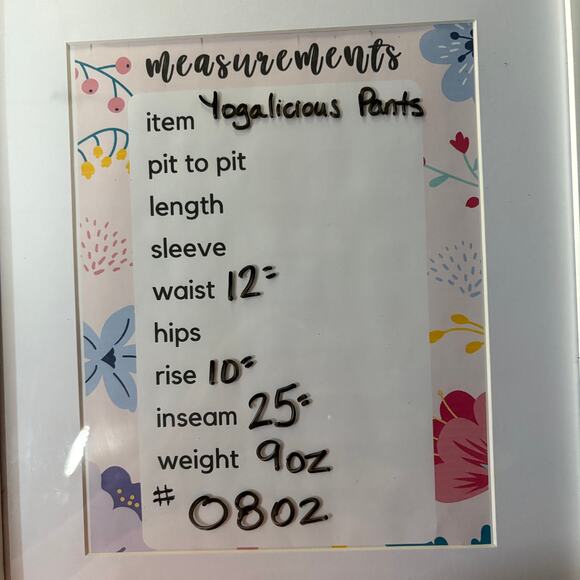 measurements
item Yogalicious Pants
pit to pit
length
sleeve
waist 12"
hips
rise 10"
inseam 25"
weight 9oz
# 0802